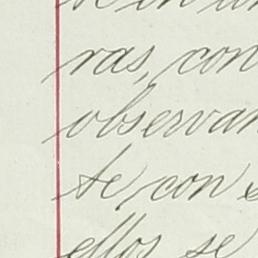 ras, con
observan
te, con s
ellos, se